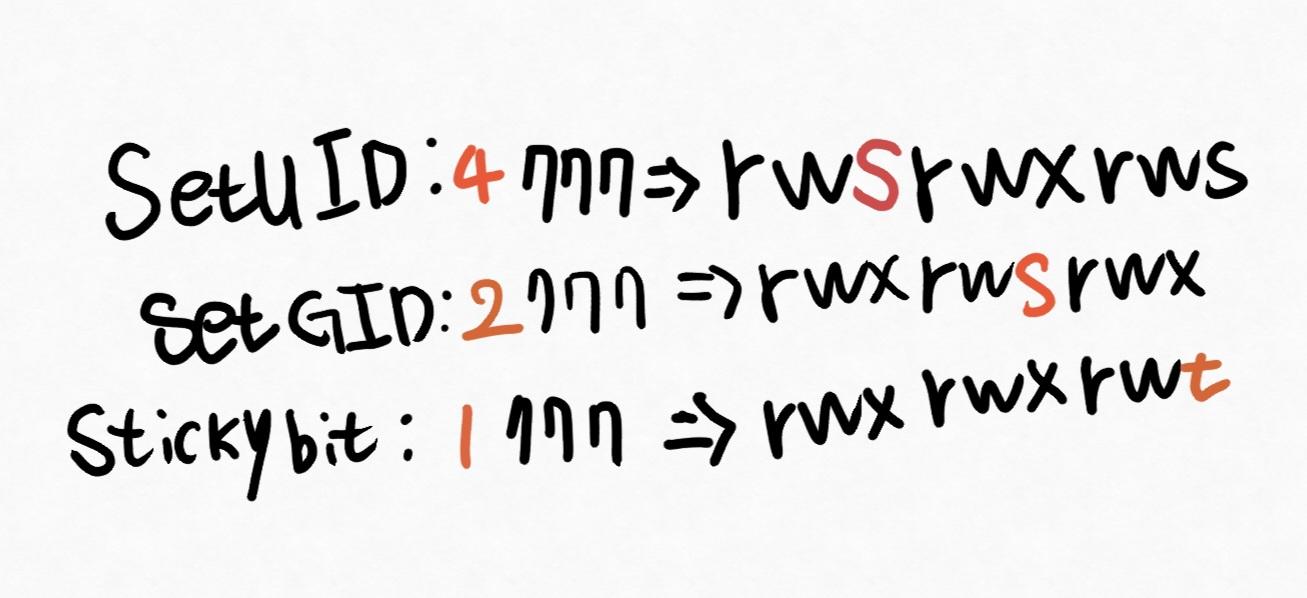 SetUID:4777=>rwSrwxrws
SetGID:2777=>rwxrwSrwx
Stickybit:1777=>rwxrwxrwt